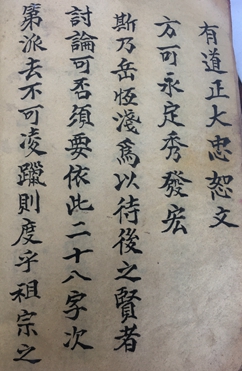 有道正大忠恕文
方可永定秀發宏
斯乃岳恆淺爲以待後之賢者
討論可否須要依此二十八字次
第派去不可凌躐則度乎祖宗之